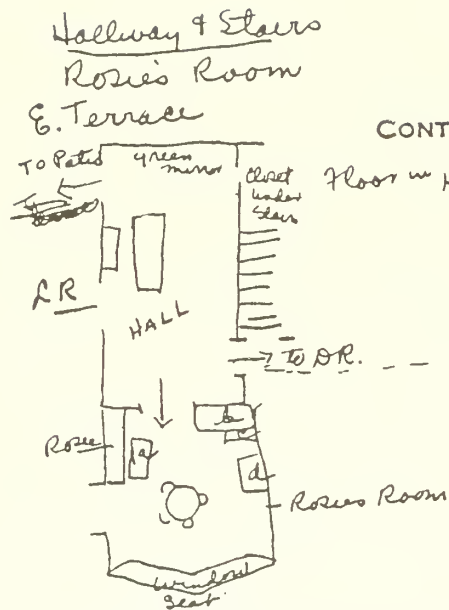 Hallway & Stairs
Rosie's Room
E. Terrace
CONT
TO Patio
green
mirror
closet
under
stairs
Floor in H
LR
HALL
→ to DR.
b
c
Rosie
a
d
Rosies Room
window
seat